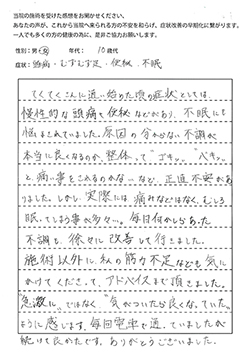 当院の施術を受けた感想をお聞かせください。
あなたの声が、これから当院へ来られる方の不安を和らげ、症状改善の早期化に繋がります。
一人でも多くの方の健康の為に、是非ご協力お願いします。
性別:男・女 年代: 10歳代
症状:頭痛・むずむず足・便秘・不眠
てくてくさんに通い始めた頃の症状としては、
慢性的な頭痛と便秘などがあり、不眠にも
悩まされていました。原因の分からない不調が
本当に良くなるのか、整体って"ゴキッ""ベキッ"
と、痛い事をされるのかな…など、正直不安があ
りました。しかし、実際には、痛みなどはなく、むしろ
眠ってしまう事が多々…。毎日何かしらあった
不調も、徐々に改善して行きました。
施術以外に、私の筋力不足なども気に
かけてくださって、アドバイスまで頂きました。
"急激に"ではなく"気がついたら良くなっていた"
ように感じます。毎回電車で通っていましたが
続けて良かったです。ありがとうございました。